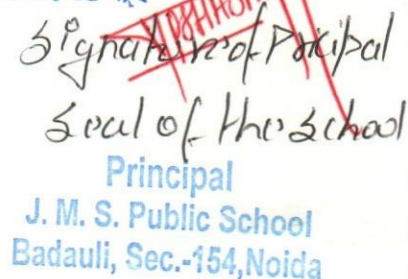 Signature of Pricipal
Seal of the School
Principal
J. M. S. Public School
Badauli, Sec.-154,Noida